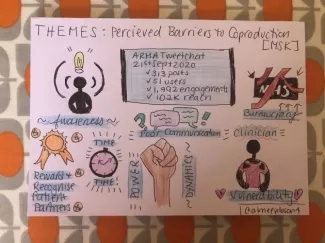 THEMES: Percieved Barriers to Coproduction
[MSK]
ARMA Tweetchat
21st Sept 2020
✓ 313 posts
✓ 51 users
✓ 1,492 engagements
✓ 102K reach
NHS
Bureaucracy
~ Awareness ~
? Poor Communication ?
= Clinician =
Vulnerability
TIME
TIME!
POWER
DYNAMICS
Reward &
Recognise
Patient
Partners